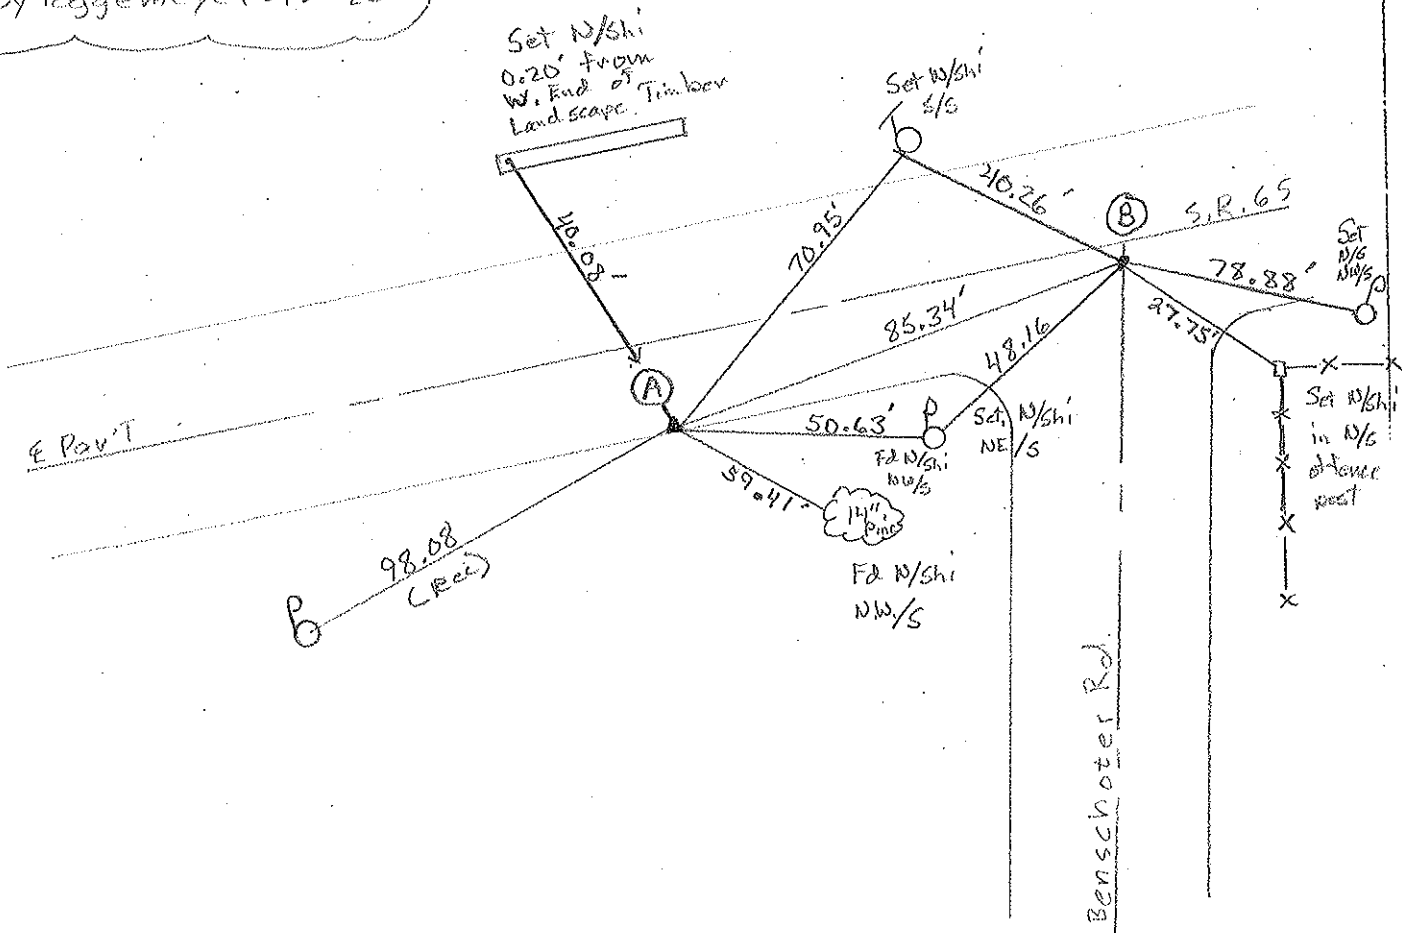 Set N/Shi
0.20' from
W. End of
Landscape Timber
Set N/Shi
S/S
40.08'
70.95'
40.26'
B
S.R. 65
Set
N/S
NW/S
78.88'
27.75'
85.34'
48.16
A
50.63'
P
Set N/Shi
NE/S
Fd N/Shi
NW/S
Set N/Shi
in N/S
of fence
post
℄ Pav'T
59.41'
14"
Pine
Fd N/Shi
N.W./S
98.08
(Rec)
P
Benschoter Rd.